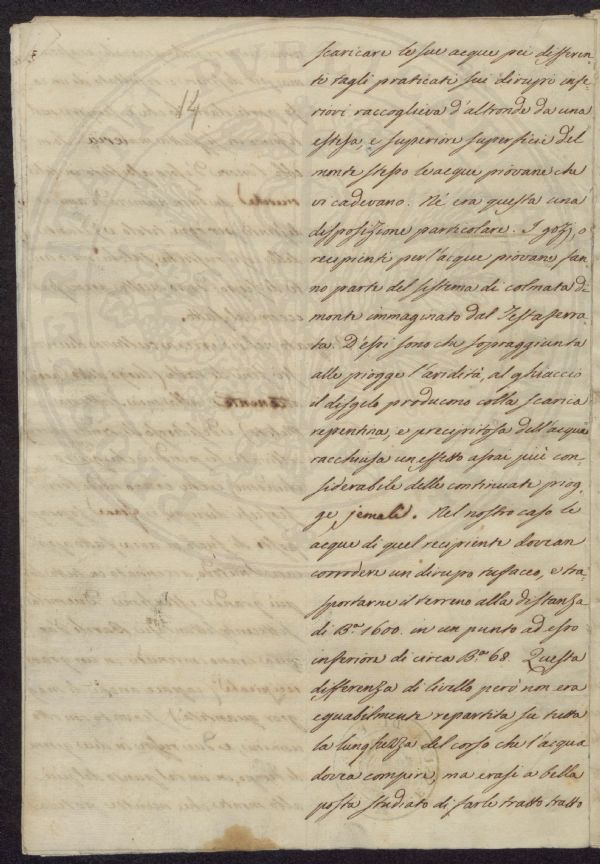 14
scaricare le sue acque pei differen-
ti tagli praticati sui dirupi infe-
riori raccoglieva d'altronde da una
estesa, e superiore superficie del
monte stesso le acque piovane che
vi cadevano. Nè era questa una
disposizione particolare. I gozzi, o
recipienti per l'acque piovane fan-
no parte del sistema di colmata di
monte immaginato dal Testaferra-
ta. D'essi sono che sopraggiunta
alle piogge l'aridità, al ghiaccio
il disgelo producono colla scarica
repentina, e precipitosa dell'acqua
racchiusa un effetto assai più con-
siderabile delle continuate piog-
ge jemali. Nel nostro caso le
acque di quel recipiente dovean
corrodere un dirupo tufaceo, e tra-
sportarne il terreno alla distanza
di B.ª 1600. in un punto ad esso
inferiore di circa B.ª 68. Questa
differenza di livello però non era
equabilmente repartita su tutta
la lunghezza del corso che l'acqua
dovea compire, ma erasi a bella
posta studiato di farle tratto tratto